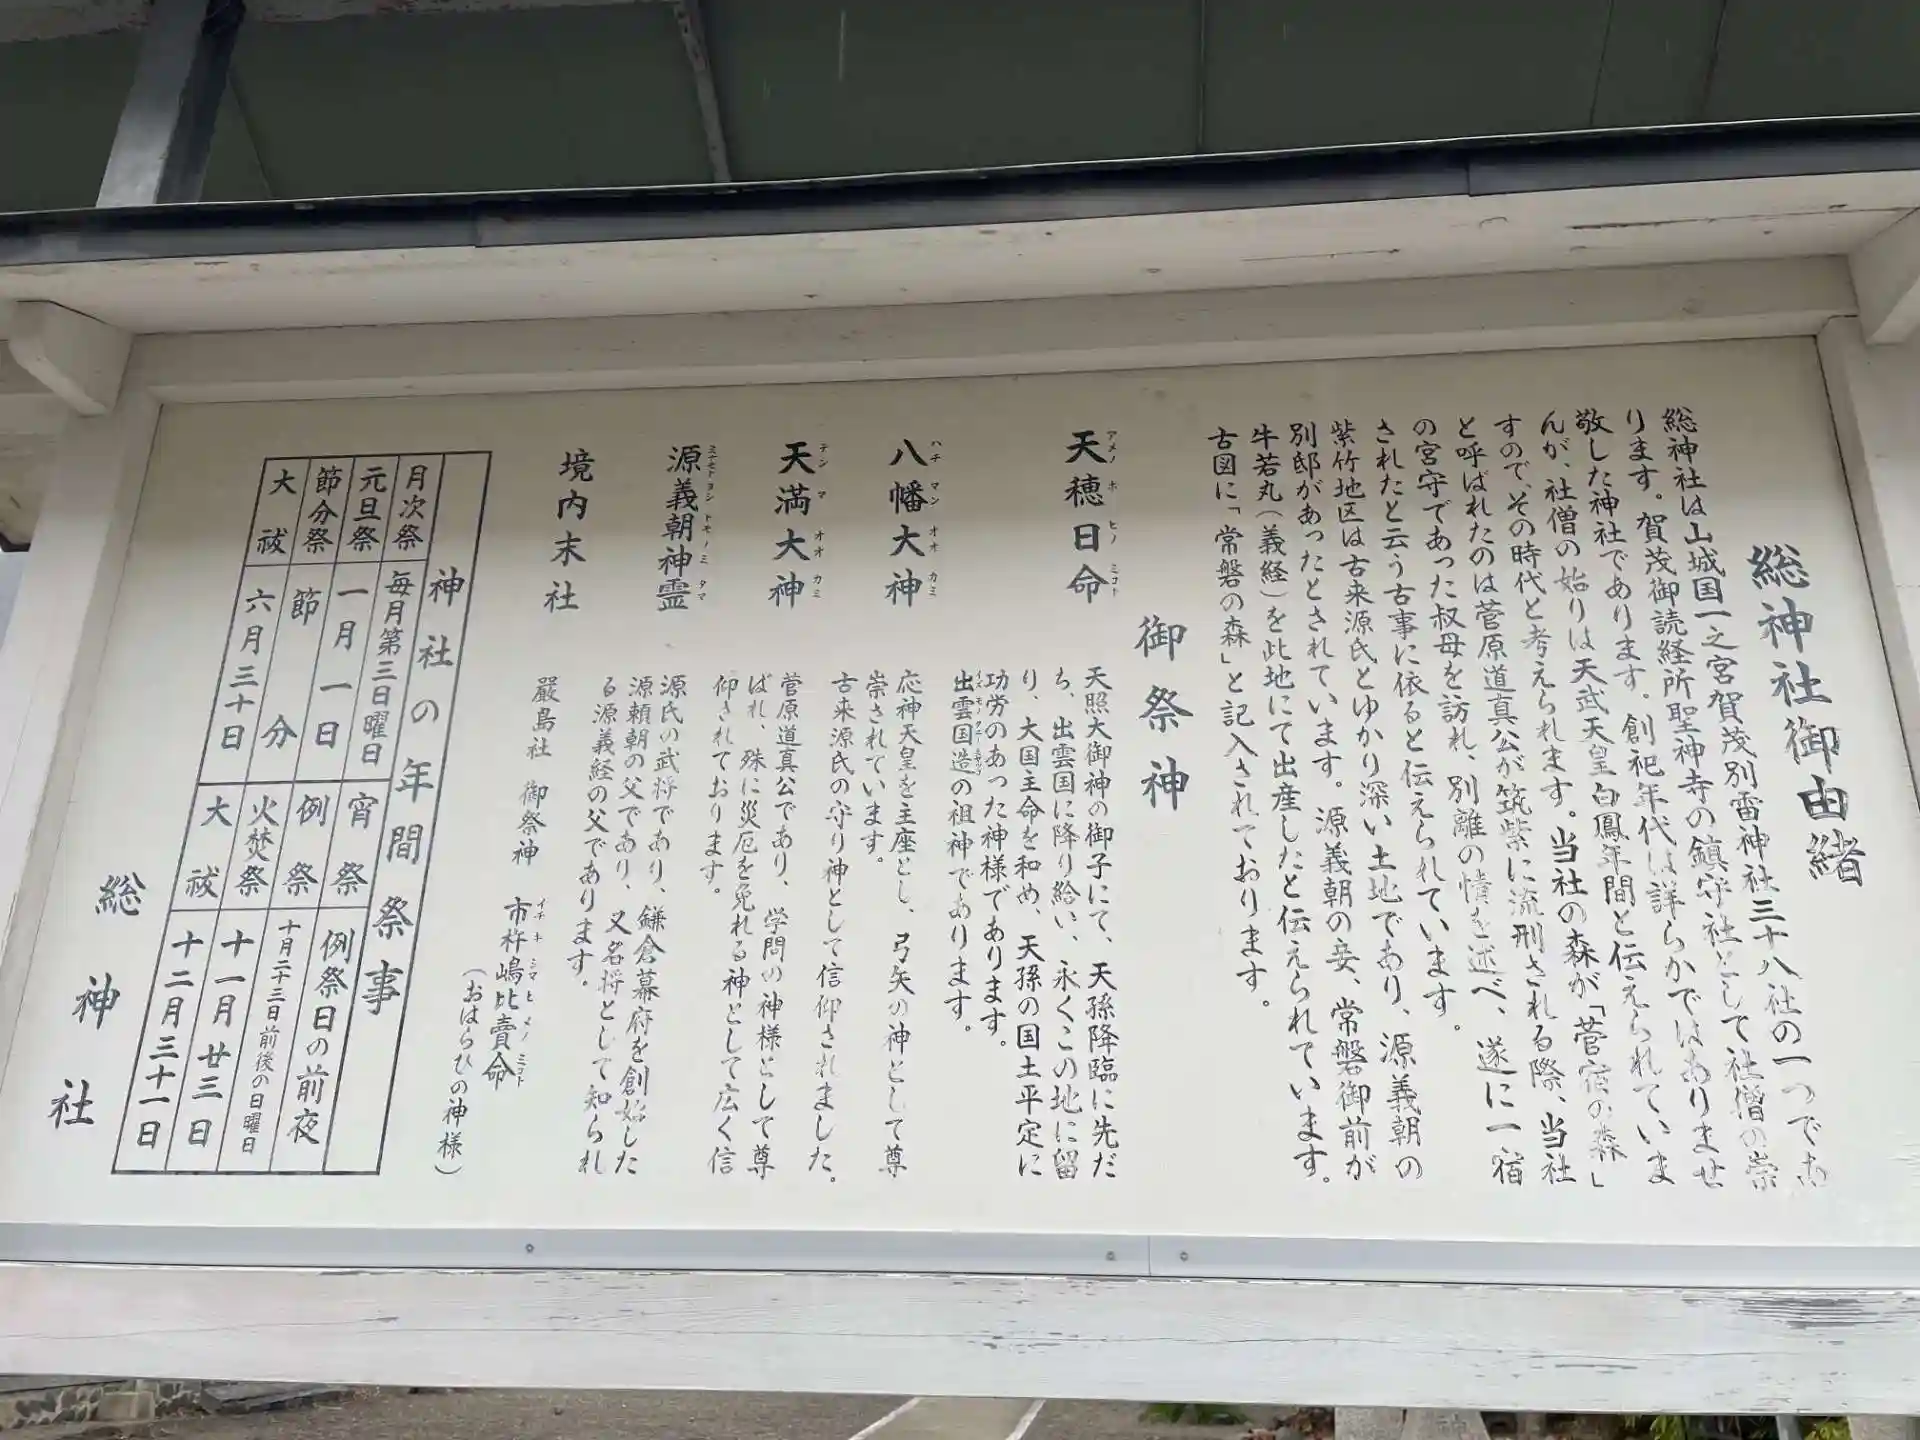 総神社御由緒
総神社は山城国一之宮賀茂別雷神社三十八社の一つであ
ります。賀茂御読経所聖神寺の鎮守社として社僧の崇
敬した神社であります。創祀年代は詳らかではありませ
んが、社僧の始りは天武天皇白鳳年間と伝えられていま
すので、その時代と考えられます。当社の森が「菅宿の森」
と呼ばれたのは菅原道真公が筑紫に流刑される際、当社
の宮守であった叔母を訪れ、別離の情を述べ、遂に一宿
されたと云う古事に依ると伝えられています。
紫竹地区は古来源氏とゆかり深い土地であり、源義朝の
別邸があったとされています。源義朝の妾、常磐御前が
牛若丸(義経)を此地にて出産したと伝えられています。
古図に「常磐の森」と記入されております。
御祭神
天穂日命
アメノホヒノミコト
天照大御神の御子にて、天孫降臨に先だ
ち、出雲国に降り給い、永くこの地に留
り、大国主命を和め、天孫の国土平定に
功労のあった神様であります。
出雲国造の祖神であります。
八幡大神
ハチマンオオカミ
応神天皇を主座とし、弓矢の神として尊
崇されています。
古来源氏の守り神として信仰されました。
天満大神
テンマオオカミ
菅原道真公であり、学問の神様として尊
ばれ、殊に災厄を免れる神として広く信
仰されております。
源義朝神霊
ミナモトヨシトモノミタマ
源氏の武将であり、鎌倉幕府を創始した
源頼朝の父であり、又名将として知られ
る源義経の父であります。
境内末社
厳島社 御祭神 市杵嶋比賣命
イチキシマヒメノミコト
(おはらひの神様)
神社の年間祭事
月次祭 毎月第三日曜日
元旦祭 一月一日
節分祭 節分
大祓 六月三十日
宵祭 例祭日の前夜
例祭 十月二十三日前後の日曜日
火焚祭 十一月廿三日
大祓 十二月三十一日
総神社